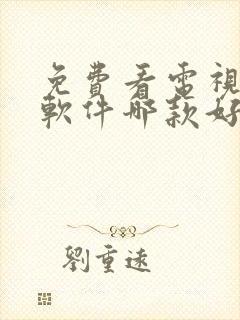 免費看電視
軟件哪款好
劉重遠